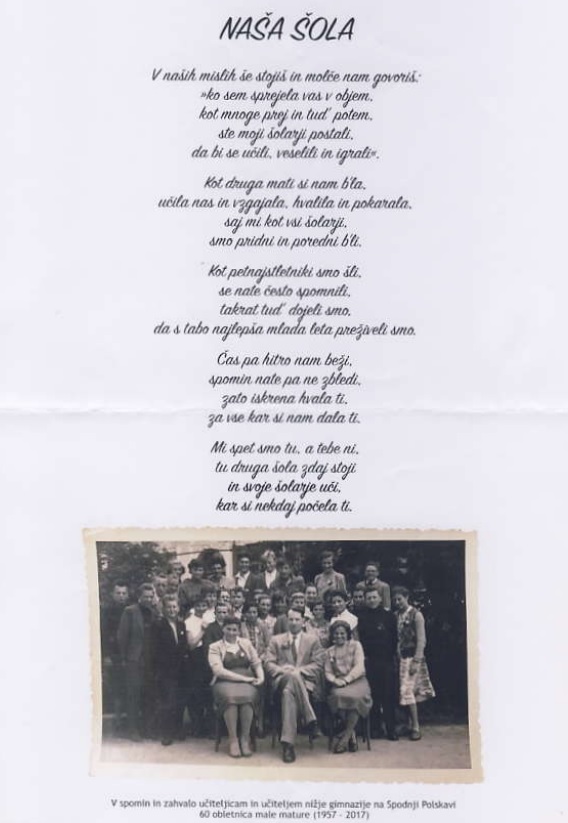 NAŠA ŠOLA
V naših mislih še stojiš in molče nam govoriš:
»ko sem sprejela vas v objem,
kot mnoge prej in tud' potem,
ste moji šolarji postali,
da bi se učili, veselili in igrali«.
Kot druga mati si nam b'la,
učila nas in vzgajala, hvalila in pokarala,
saj mi kot vsi šolarji,
smo pridni in poredni b'li.
Kot petnajstletniki smo šli,
se nate često spomnili,
takrat tud' dojeli smo,
da s tabo najlepša mlada leta preživeli smo.
Čas pa hitro nam beži,
spomin nate pa ne zbledi,
zato iskrena hvala ti,
za vse kar si nam dala ti.
Mi spet smo tu, a tebe ni,
tu druga šola zdaj stoji
in svoje šolarje uči,
kar si nekdaj počela ti.
V spomin in zahvalo učiteljicam in učiteljem nižje gimnazije na Spodnji Polskavi
60 obletnica male mature (1957 - 2017)